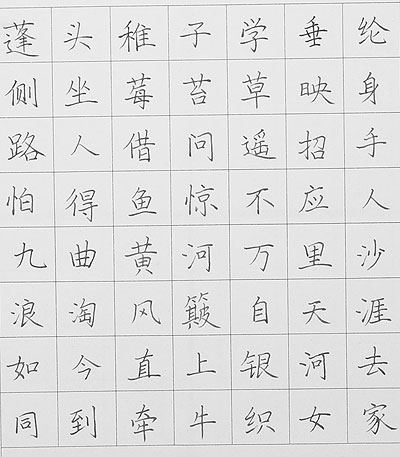 蓬头稚子学垂纶
侧坐莓苔草映身
路人借问遥招手
怕得鱼惊不应人
九曲黄河万里沙
浪淘风簸自天涯
如今直上银河去
同到牵牛织女家